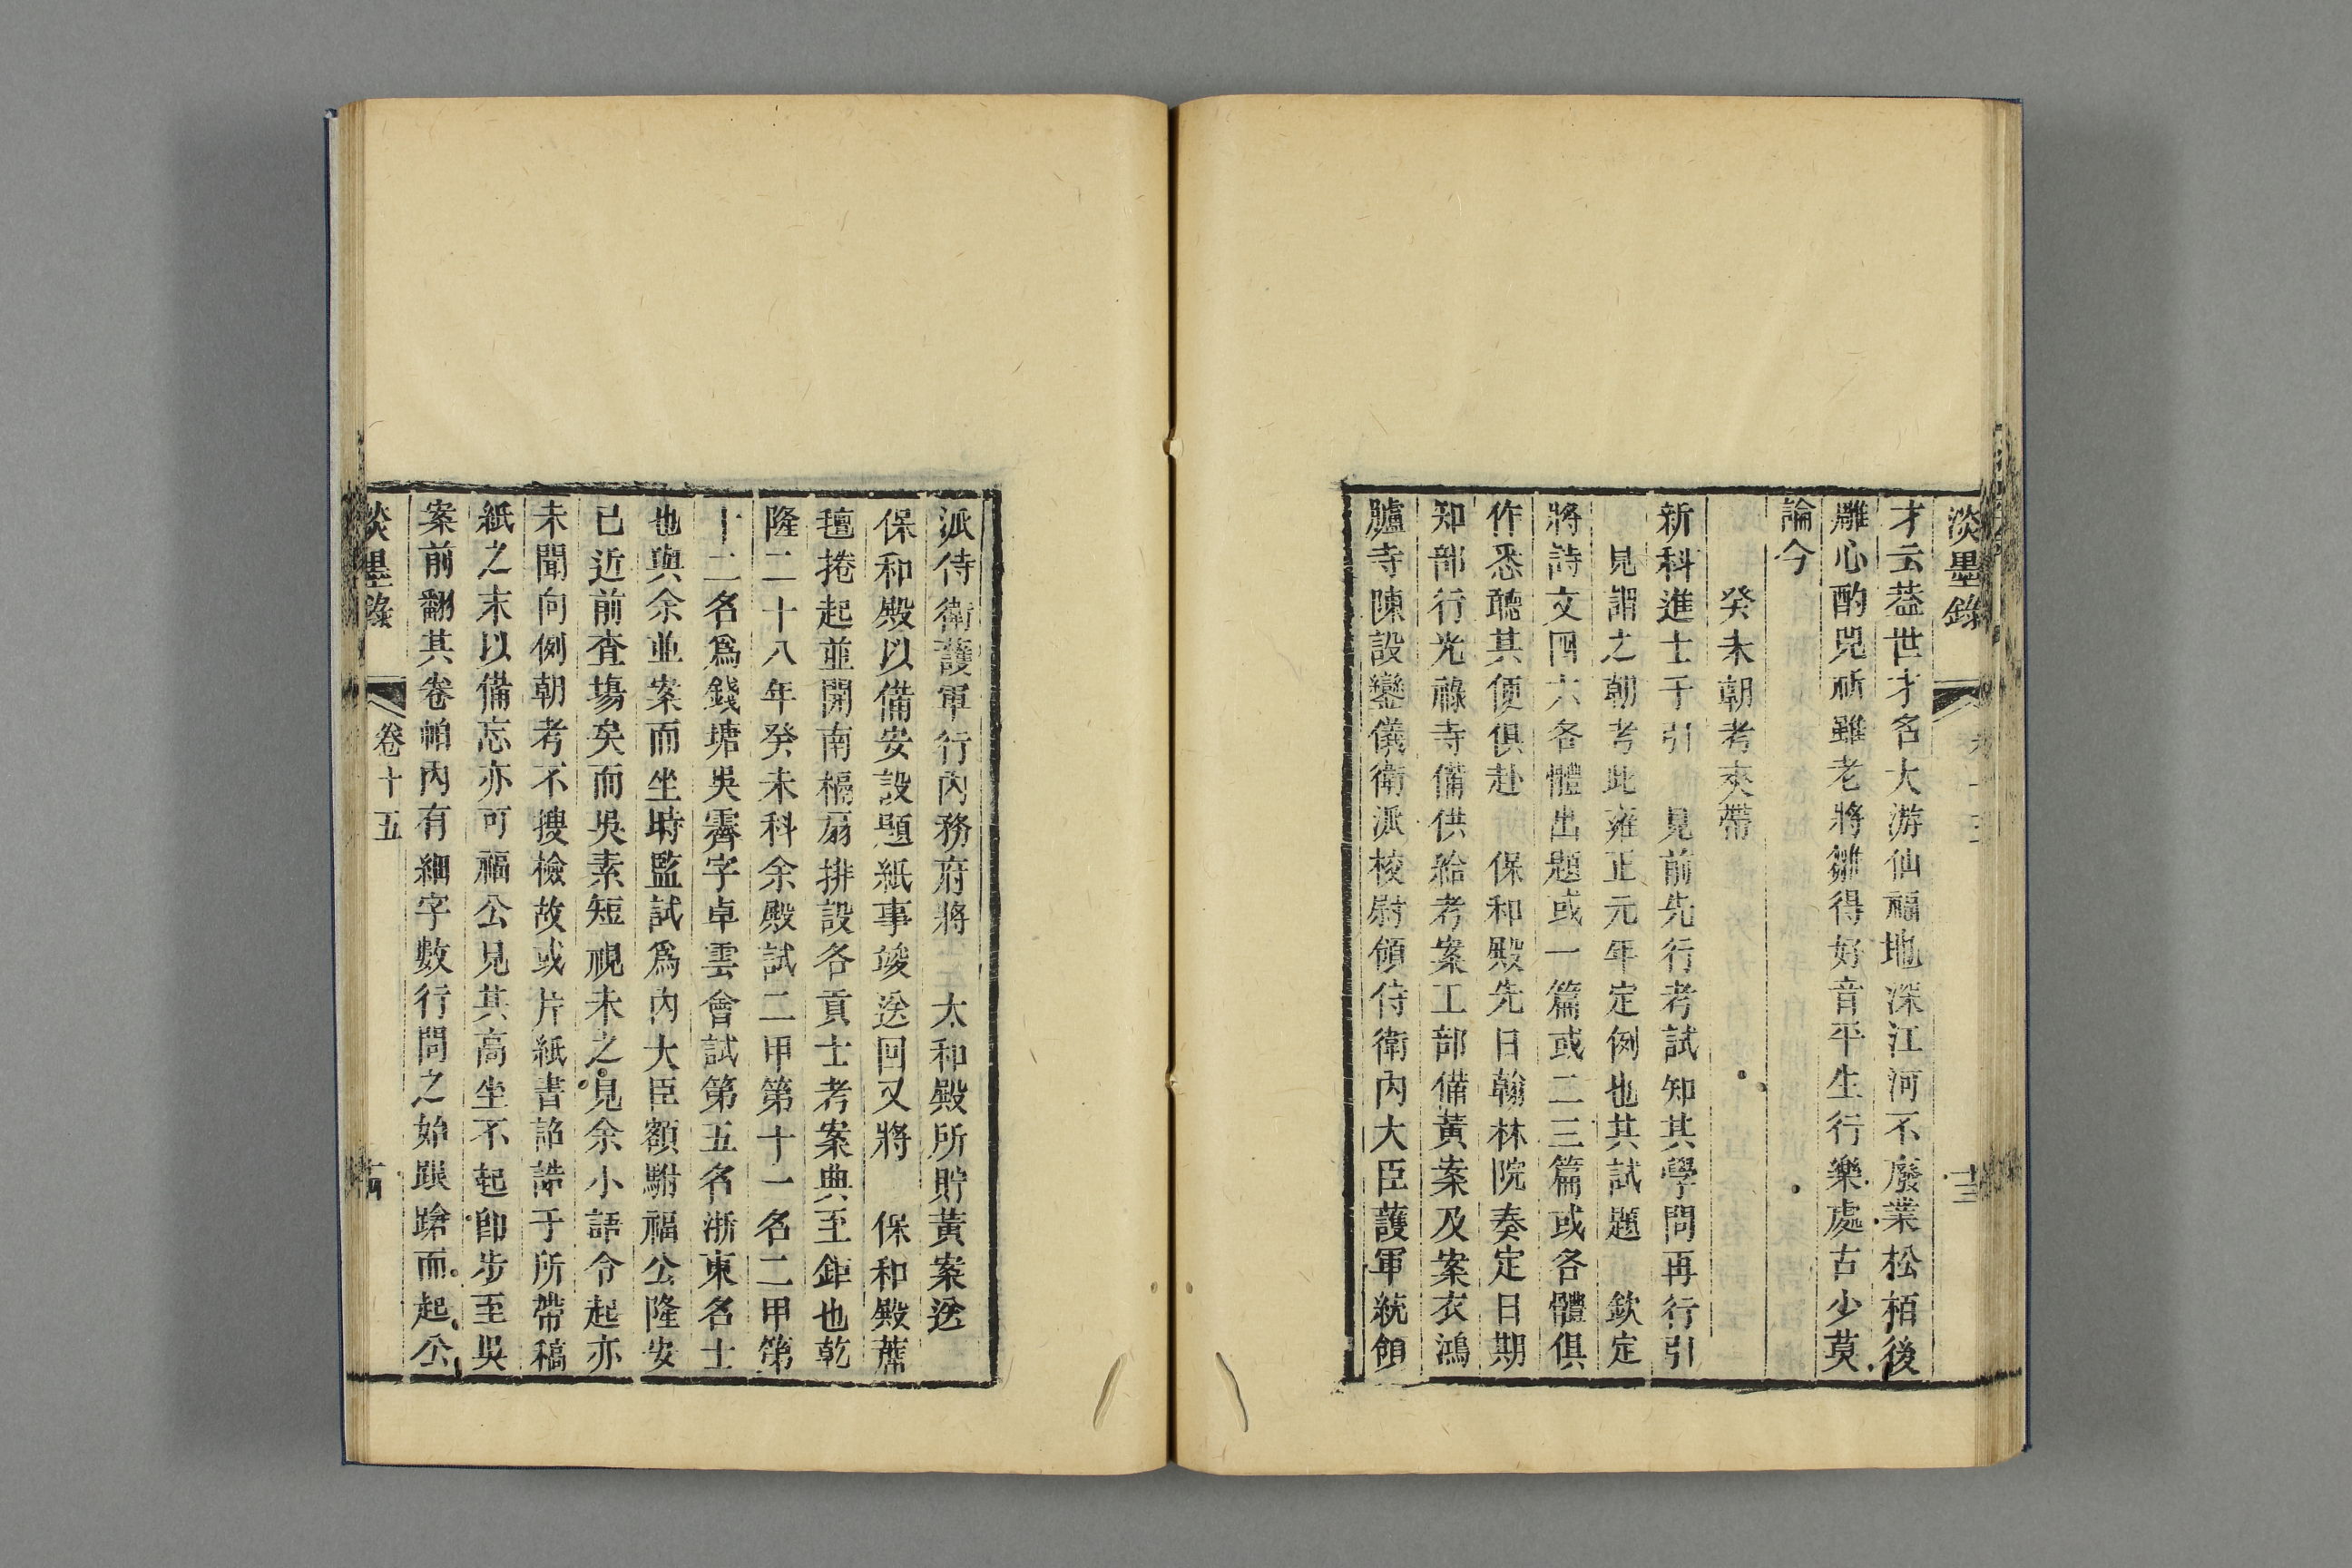 淡墨錄
十三
才云葢世才名大游仙福地深江河不廢業松栢後
雕心酌兕祈雖老將雛得好音平生行樂處古少莫
論今
癸未朝考夾帶
新科進士于引 見前先行考試知其學問再行引
見謂之朝考此雍正元年定例也其試題 欽定
將詩文四六各體出題或一篇或二三篇或各體俱
作悉聽其便俱赴 保和殿先日翰林院奏定日期
知部行光祿寺備供給考案工部備黃案及案衣鴻
臚寺陳設鑾儀衛派校尉領侍衛內大臣護軍統領
派侍衛護軍行內務府將 太和殿所貯黃案送
保和殿以備安設題紙事竣送回又將 保和殿蓆
氊捲起並開南槅扇排設各貢士考案典至鉅也乾
隆二十八年癸未科余殿試二甲第十一名二甲第
十二名爲錢塘吳霽字卓雲會試第五名浙東名士
也與余並案而坐時監試爲內大臣額駙福公隆安
已近前查塲矣而吳素短視未之見余小語令起亦
未聞向例朝考不搜檢故或片紙書詔誥于所帶稿
紙之末以備忘亦可福公見其高坐不起卽步至吳
案前翻其卷帕內有細字數行問之始踉蹌而起公
淡墨錄
卷十五